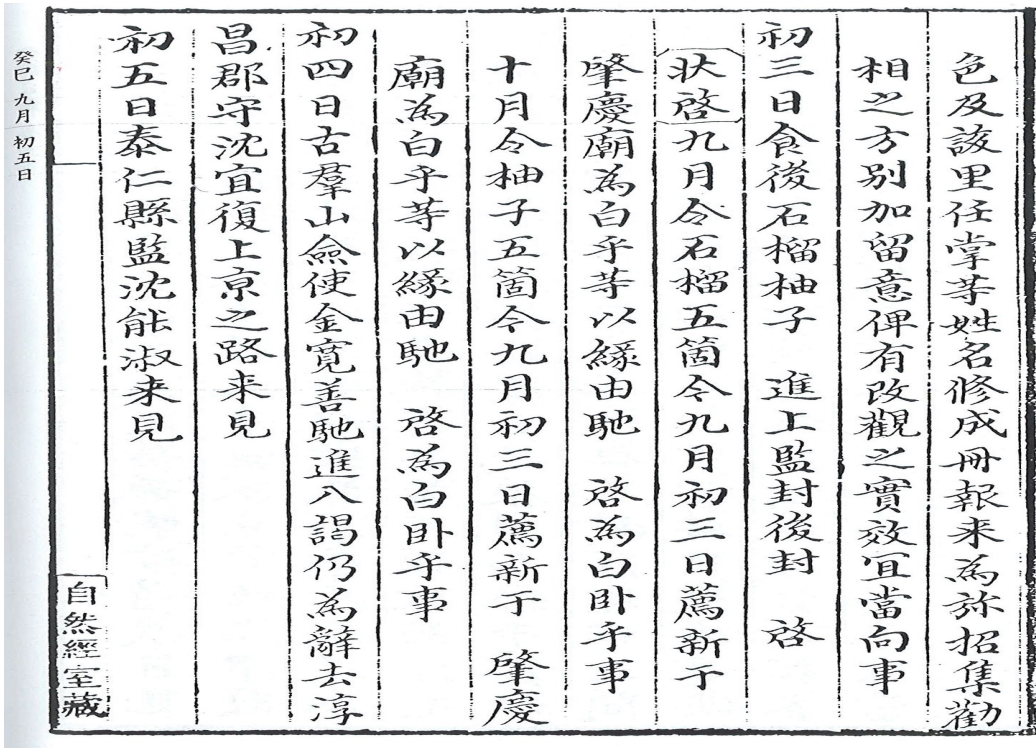 色及該里任掌等姓名修成冊報来為旀招集勸
相之方別加留意俾有改觀之實效宜當向事
初三日食後石榴柚子　進上監封後封　啓
狀啓九月令石榴五箇今九月初三日薦新于
肇慶廟為白乎等以緣由馳　啓為白卧乎事
十月令柚子五箇今九月初三日薦新于　肇慶
廟為白乎等以緣由馳　啓為白卧乎事
初四日古羣山僉使金寬善馳進入謁仍為辭去淳
昌郡守沈宜復上京之路来見
初五日泰仁縣監沈能淑来見
自然經室藏
癸巳 九月 初五日